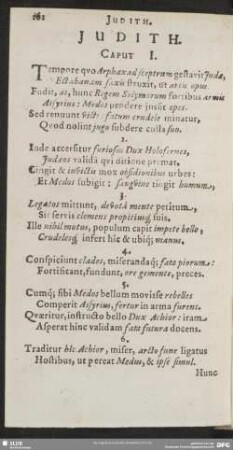 162 JUDITH.
JUDITH.
CAPUT I.
Tempore quo Arphaxad sceptrum gestavit Judæ,
Ecbatanam saxis struxit, ut arcis opus
Fudit, at, hunc Regem Solymorum fortibus armis
Assyrius: Medos pendere jussit opes.
Sed renuunt victi: fatum crudele minatur,
Quod nolint jugo subdere colla suo.
2.
Inde accersitur furiosus Dux Holofernes,
Judæos validâ qvi ditione premat.
Cingit & invictis mox obsidionibus urbes:
Et Medos subigit: sangvine tingit humum,
3.
Legatos mittunt, devotâ mente petitum,
Sit servis clemens propitiusq; suis.
Ille nihil motus, populum capit impete bello,
Crudelesq; infert hic & ubiq; manus.
4.
Conspiciunt clades, miserandaq; fata piorum:
Fortificant, fundunt, ore gemente, preces.
5.
Cumq; sibi Medos bellum movisse rebelles
Comperit Assyrius, fertur in arma furens.
Quæritur, instructo bello Dux Achior: iram
Asperat hinc validam fata futura docens.
6.
Traditur hîc Achior, miser, arcto fune ligatus
Hostibus, ut pereat Medus, & ipse simul.
Hunc